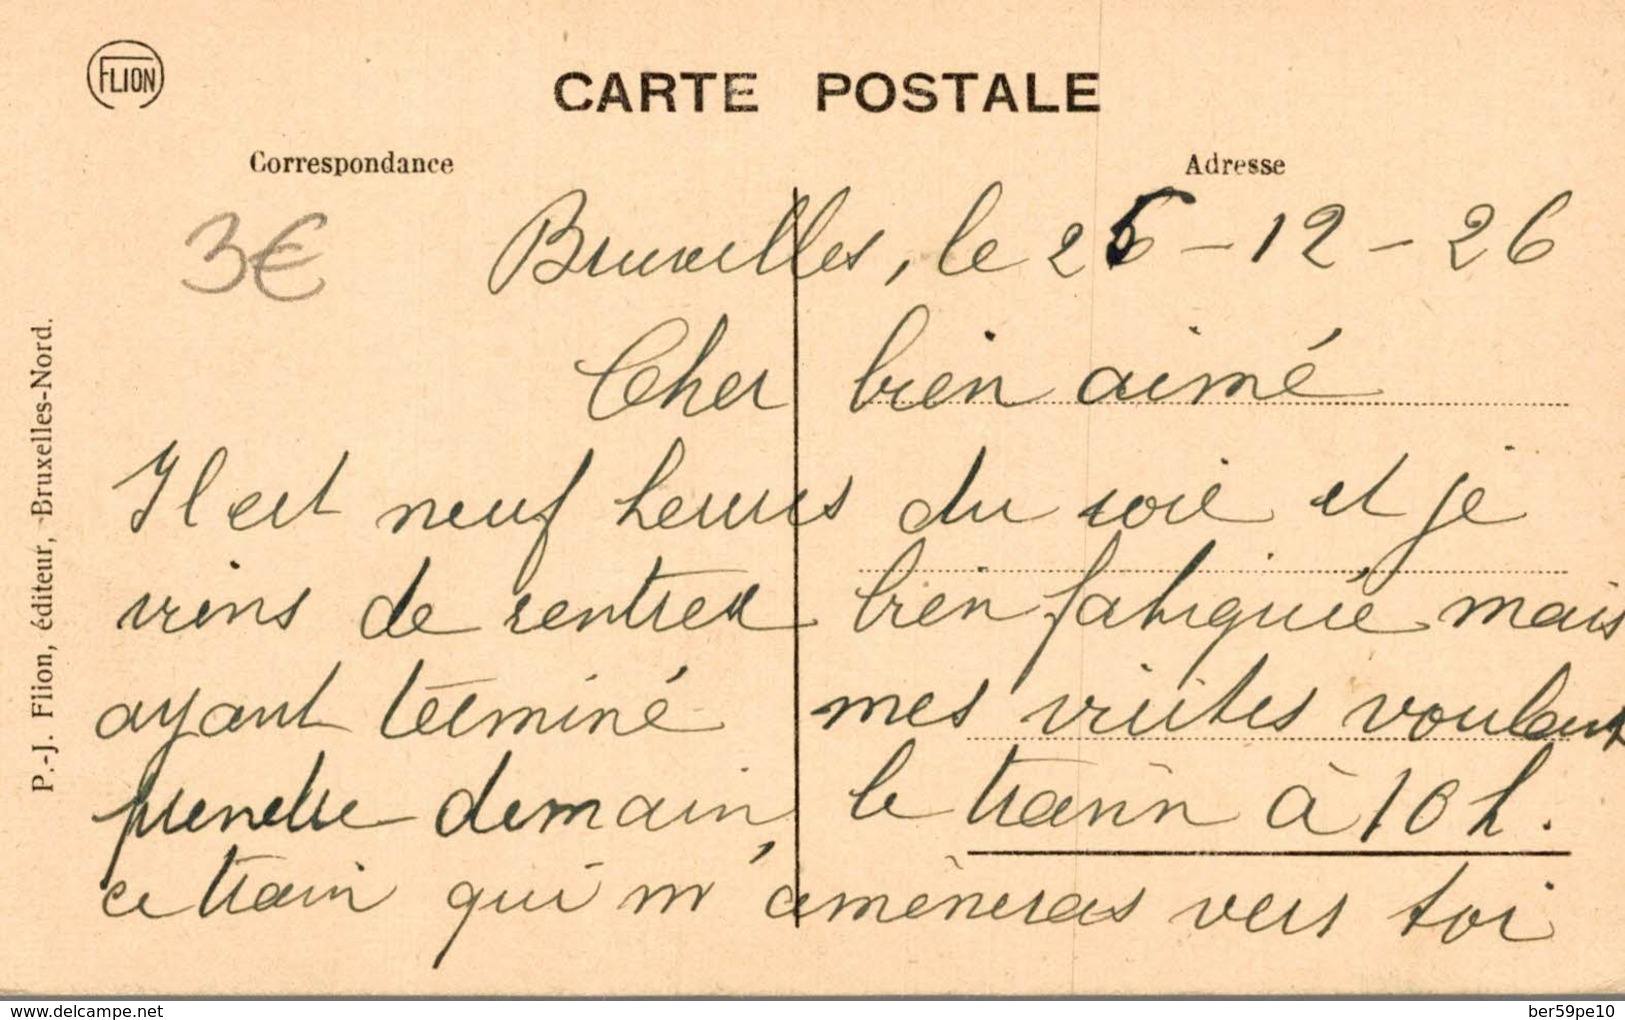 FLION
CARTE POSTALE
Correspondance
Adresse
3€
Bruxelles, le 25-12-26
Cher bien aimé
Il est neuf heures du soir et je
viens de rentrer bien fatiguée mais
ayant terminé mes visites voulant
prendre demain le train à 10 h.
ce train qui m'amèneras vers toi
P.-J. Flion, éditeur, Bruxelles-Nord.
www.delcampe.net
ber59pe10